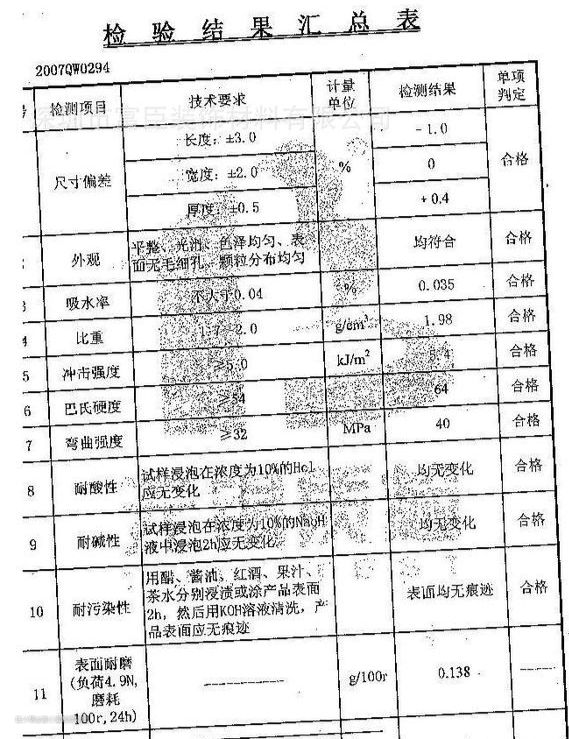 检验结果汇总表
2007QW0294
检测项目 技术要求 计量单位 检测结果 单项判定
尺寸偏差 长度：±3.0 % -1.0 合格
宽度：±2.0 0
厚度：±0.5 +0.4
外观 平整、光滑、色泽均匀、表面无毛细孔、颗粒分布均匀 均符合 合格
吸水率 不大于0.04 % 0.035 合格
4 比重 1.7~2.0 g/cm³ 1.98 合格
5 冲击强度 ≥5.0 kJ/m² 合格
6 巴氏硬度 ≥54 64 合格
7 弯曲强度 ≥32 MPa 40 合格
8 耐酸性 试样浸泡在浓度为10%的Hcl应无变化 均无变化 合格
9 耐碱性 试样浸泡在浓度为10%的NaoH液中浸泡2h应无变化 均无变化 合格
10 耐污染性 用醋、酱油、红酒、果汁、茶水分别浸渍或涂产品表面2h，然后用KOH溶液清洗，产品表面应无痕迹 表面均无痕迹 合格
11 表面耐磨(负荷4.9N,磨耗100r,24h) ———— g/100r 0.138 ——